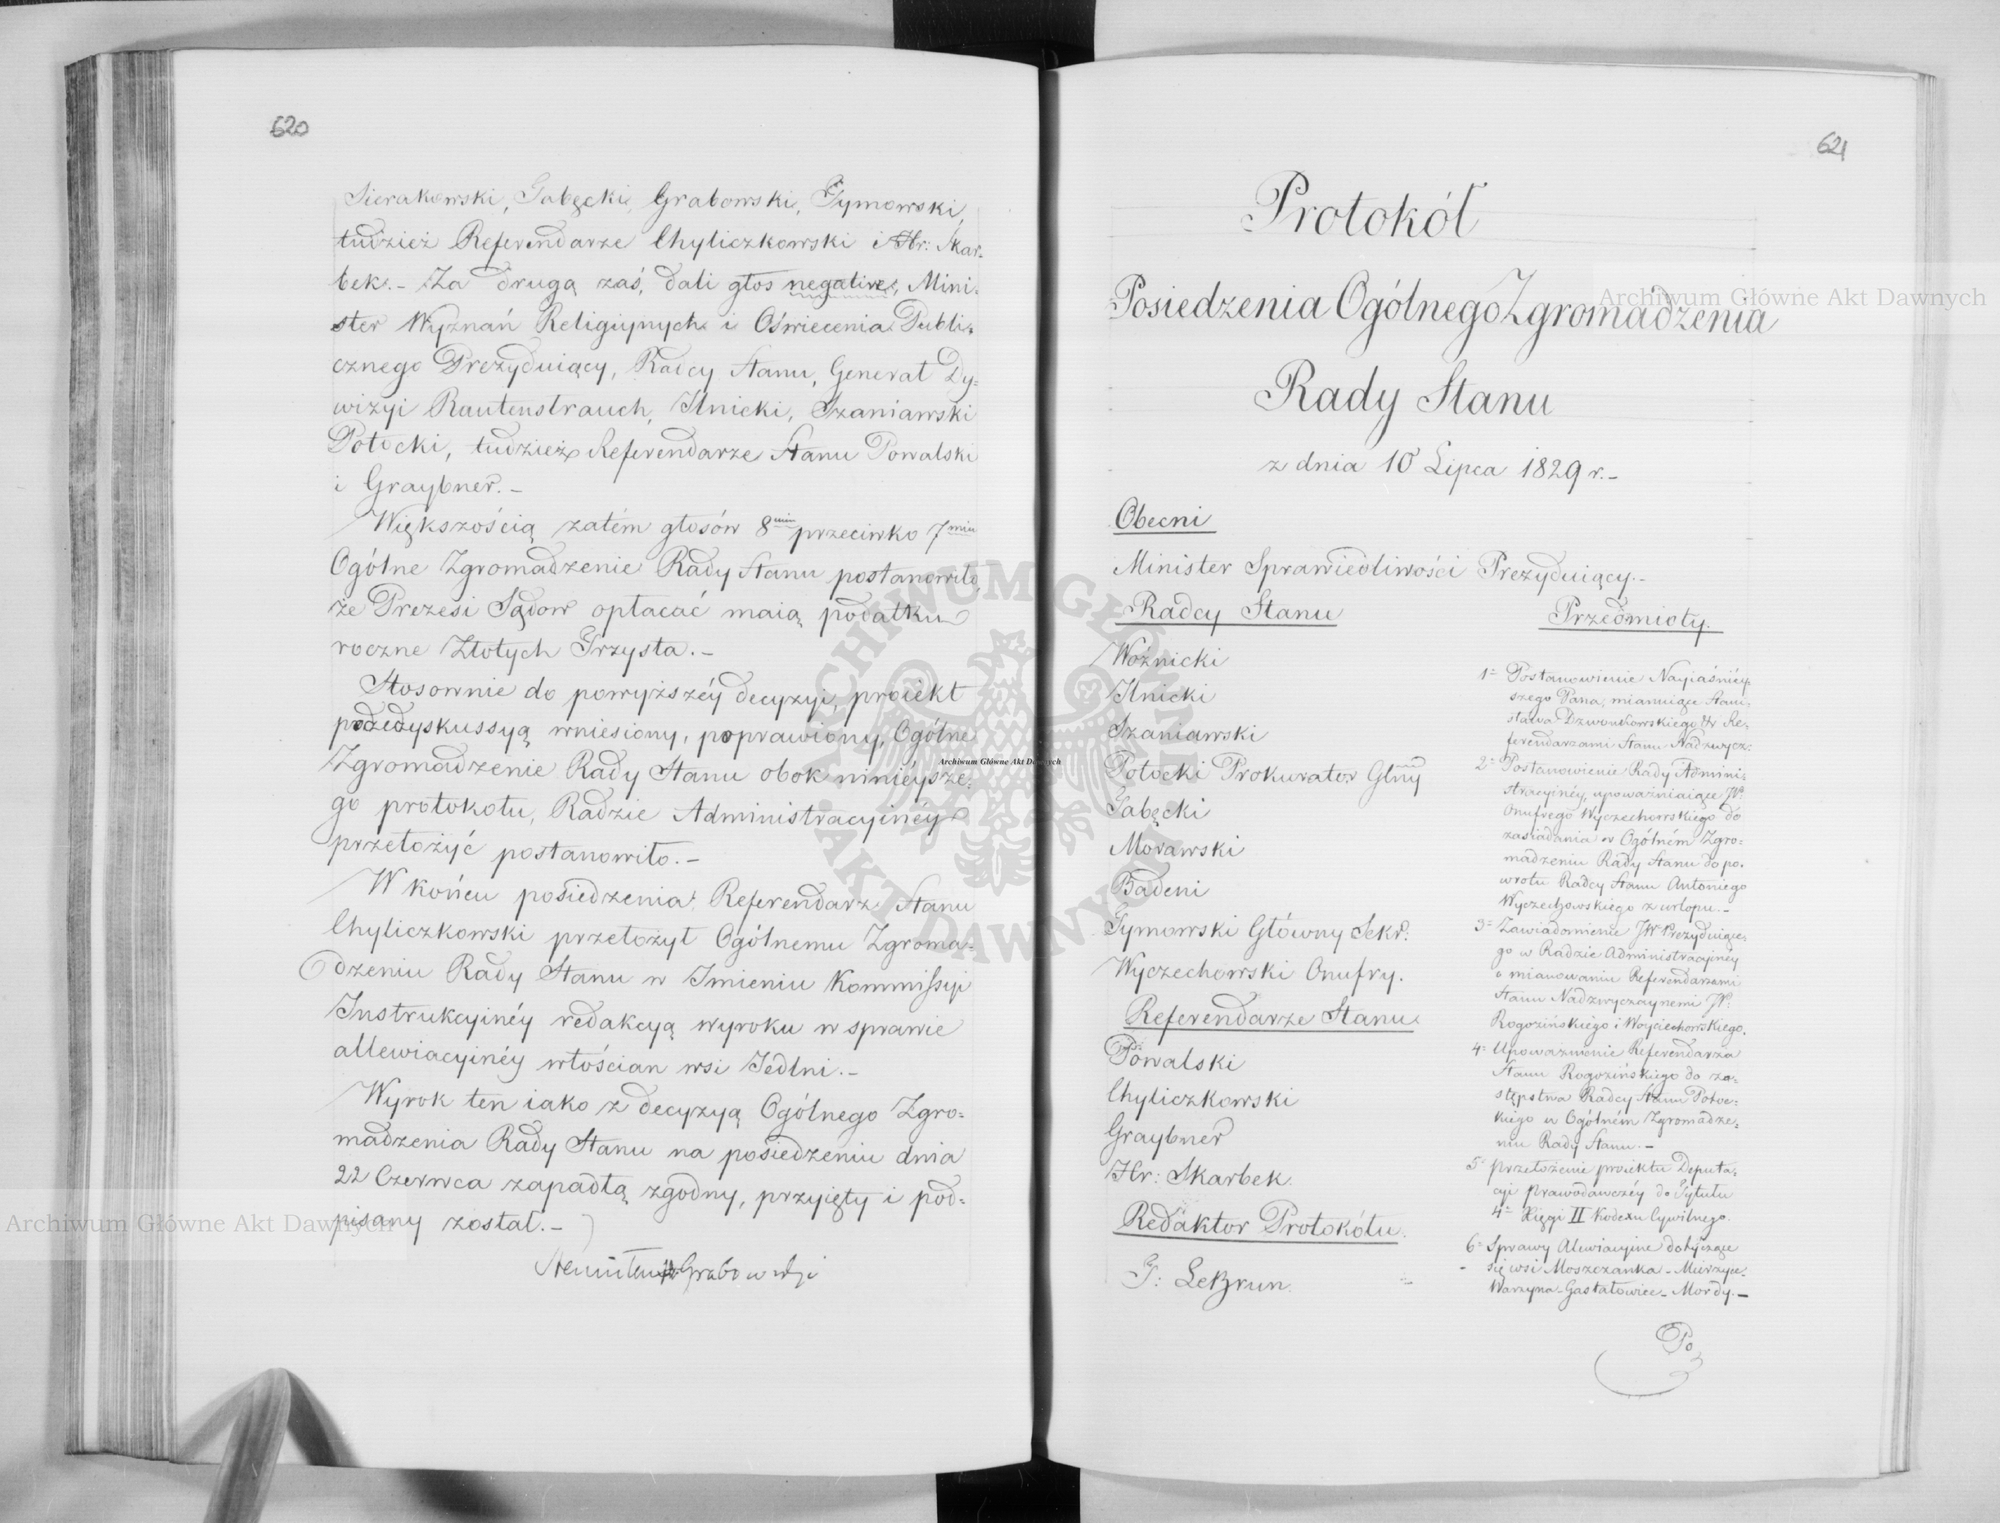 620
Sierakowski, Gabęcki, Grabowski, Tymowski,
tudzież Referendarze Chyliczkowski i Hr: Skar-
bek. - Za drugą zaś, dali głos negative, Mini-
ster Wyznań Religiynych i Oświecenia Publi-
cznego Prezyduiący, Radcy Stanu, Generał Dy-
wizyi Rautenstrauch, Ilnicki, Szaniawski
Potocki, tudzież Referendarze Stanu Powalski
i Graybner. -
Większością zatém głosów 8miu przeciwko 7miu
Ogólne Zgromadzenie Rady Stanu postanowiło,
że Prezesi Sądów opłacać maią podatku
roczne Złotych Trzysta. -
Stosownie do powyższéy decyzyi, proiekt
pod dyskussyą wniesiony, poprawiony, Ogólne
Zgromadzenie Rady Stanu obok ninieysze-
go protokołu, Radzie Administracyinéy
przełożyć postanowiło. -
W końcu posiedzenia Referendarz Stanu
Chyliczkowski przełożył Ogólnemu Zgroma-
dzeniu Rady Stanu w Imieniu Kommissyi
Instrukcyinéy redakcyą wyroku w sprawie
allewiacyinéy włościan wsi Jedlni. -
Wyrok ten iako z decyzyą Ogólnego Zgro-
madzenia Rady Stanu na posiedzeniu dnia
22 Czerwca zapadłą zgodny, przyięty i pod-
pisany został. -
Grabowski
621
Protokół
Posiedzenia Ogólnego Zgromadzenia
Rady Stanu
z dnia 10 Lipca 1829 r. -
Obecni
Minister Sprawiedliwości Prezyduiący. -
Radcy Stanu
Woźnicki
Ilnicki
Szaniawski
Potocki Prokurator Glny
Gabęcki
Morawski
Badeni
Tymowski Główny Sekr:
Wyczechowski Onufry.
Referendarze Stanu
Powalski
Chyliczkowski
Graybner
Hr: Skarbek.
Redaktor Protokółu.
F: LeBrun.
Przedmioty.
1= Postanowienie Nayiaśniey-
szego Pana, mianuiące Stani-
sława Dzwonkowskiego Referendarzami Stanu Nadzwycz:
2= Postanowienie Rady Admini-
stracyinéy, upoważniaiące JW.
Onufrego Wyczechowskiego do
zasiadania w Ogólném Zgro-
madzeniu Rady Stanu do po-
wrotu Radcy Stanu Antoniego
Wyczechowskiego z urlopu. -
3= Zawiadomienie JW Prezyduiące-
go w Radzie Administracyinéy
o mianowaniu Referendarzami
Stanu Nadzwyczaynemi JW.
Rogozińskiego i Woyciechowskiego.
4= Upoważnienie Referendarza
Stanu Rogozińskiego do za-
stępstwa Radcy Stanu Potoc-
kiego w Ogólném Zgromadze-
niu Rady Stanu. -
5= przełożenie proiektu Deputa-
cyi Prawodawczéy do Tytułu
4= Xięgi II Kodexu Cywilnego.
6= Sprawy Alewiacyine dotyczące
się wsi Moszczanka - Mierzyce -
Warzyna - Gastatowice - Mordy. -
Po
Archiwum Główne Akt Dawnych
Archiwum Główne Akt Dawnych
Archiwum Główne Akt Dawnych
ARCHIWUM GŁÓWNE
AKT DAWNYCH